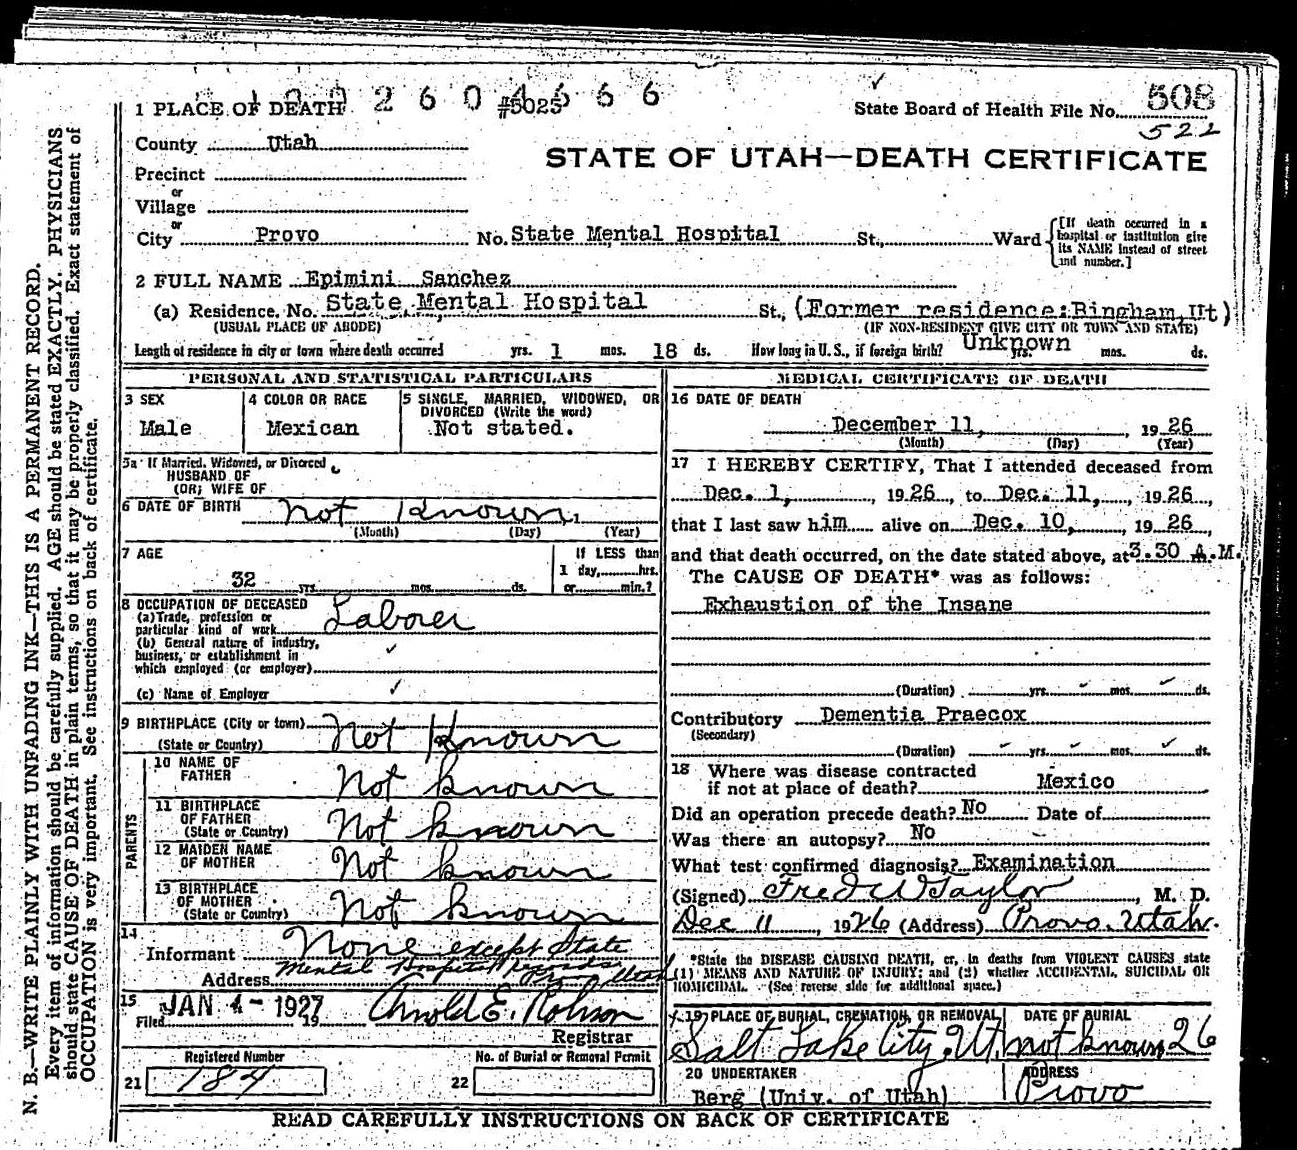 1 PLACE OF DEATH 2 6 0 4 6 6 6
#5025
State Board of Health File No. 508
522
County Utah
STATE OF UTAH—DEATH CERTIFICATE
Precinct
or
Village
or
City Provo No. State Mental Hospital St., Ward
[If death occurred in a hospital or institution give its NAME instead of street and number.]
2 FULL NAME Epimini Sanchez
(a) Residence. No. State Mental Hospital St., (Former residence: Bingham, Ut)
(USUAL PLACE OF ABODE) (IF NON-RESIDENT GIVE CITY OR TOWN AND STATE)
Length of residence in city or town where death occurred yrs. 1 mos. 18 ds. How long in U. S., if foreign birth? Unknown yrs. mos. ds.
PERSONAL AND STATISTICAL PARTICULARS
3 SEX
Male
4 COLOR OR RACE
Mexican
5 SINGLE, MARRIED, WIDOWED, OR
DIVORCED (Write the word)
Not stated.
5a If Married, Widowed, or Divorced
HUSBAND OF
(OR) WIFE OF
6 DATE OF BIRTH not known
(Month) (Day) (Year)
7 AGE
32 yrs. mos. ds.
If LESS than
1 day, hrs.
or min.?
8 OCCUPATION OF DECEASED
(a) Trade, profession or
particular kind of work Laborer
(b) General nature of industry,
business, or establishment in
which employed (or employer)
(c) Name of Employer
9 BIRTHPLACE (City or town) Not Known
(State or Country)
PARENTS
10 NAME OF
FATHER Not known
11 BIRTHPLACE
OF FATHER
(State or Country) Not known
12 MAIDEN NAME
OF MOTHER Not known
13 BIRTHPLACE
OF MOTHER
(State or Country) Not known
14
Informant None except State
Address Mental Hospital records Provo Utah
15
Filed JAN 4 - 1927 19 Arnold E. Robison
Registrar
Registered Number
21 184
No. of Burial or Removal Permit
22
MEDICAL CERTIFICATE OF DEATH
16 DATE OF DEATH
December 11, 19 26
(Month) (Day) (Year)
17 I HEREBY CERTIFY, That I attended deceased from
Dec. 1, 19 26, to Dec. 11, 19 26,
that I last saw him alive on Dec. 10, 19 26
and that death occurred, on the date stated above, at 3.30 A.M.
The CAUSE OF DEATH* was as follows:
Exhaustion of the Insane
(Duration) yrs. mos. ds.
Contributory Dementia Praecox
(Secondary)
(Duration) yrs. mos. ds.
18 Where was disease contracted
if not at place of death? Mexico
Did an operation precede death? No Date of
Was there an autopsy? No
What test confirmed diagnosis? Examination
(Signed) Fred W Taylor, M. D.
Dec 11 1926 (Address) Provo, Utah.
*State the DISEASE CAUSING DEATH, or, in deaths from VIOLENT CAUSES state
(1) MEANS AND NATURE OF INJURY; and (2) whether ACCIDENTAL, SUICIDAL OR
HOMICIDAL. (See reverse side for additional space.)
19 PLACE OF BURIAL, CREMATION, OR REMOVAL
Salt Lake City, Ut.
DATE OF BURIAL
not known 26
20 UNDERTAKER
Berg (Univ. of Utah)
ADDRESS
Provo
READ CAREFULLY INSTRUCTIONS ON BACK OF CERTIFICATE
N. B.—WRITE PLAINLY WITH UNFADING INK—THIS IS A PERMANENT RECORD.
Every item of information should be carefully supplied. AGE should be stated EXACTLY. PHYSICIANS
should state CAUSE OF DEATH in plain terms, so that it may be properly classified. Exact statement of
OCCUPATION is very important. See instructions on back of certificate.